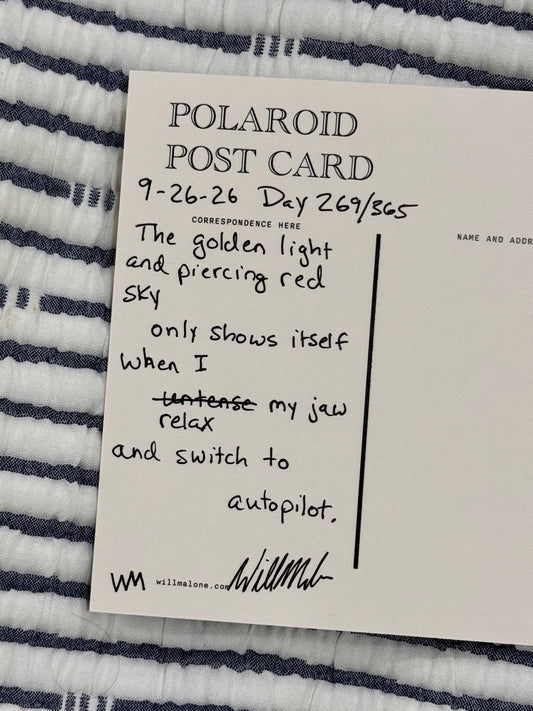 POLAROID
POST CARD
9-26-26 Day 269/365
CORRESPONDENCE HERE
NAME AND ADDR
The golden light
and piercing red
sky
only shows itself
when I
untense my jaw
relax
and switch to
autopilot.
WM willmalone.com